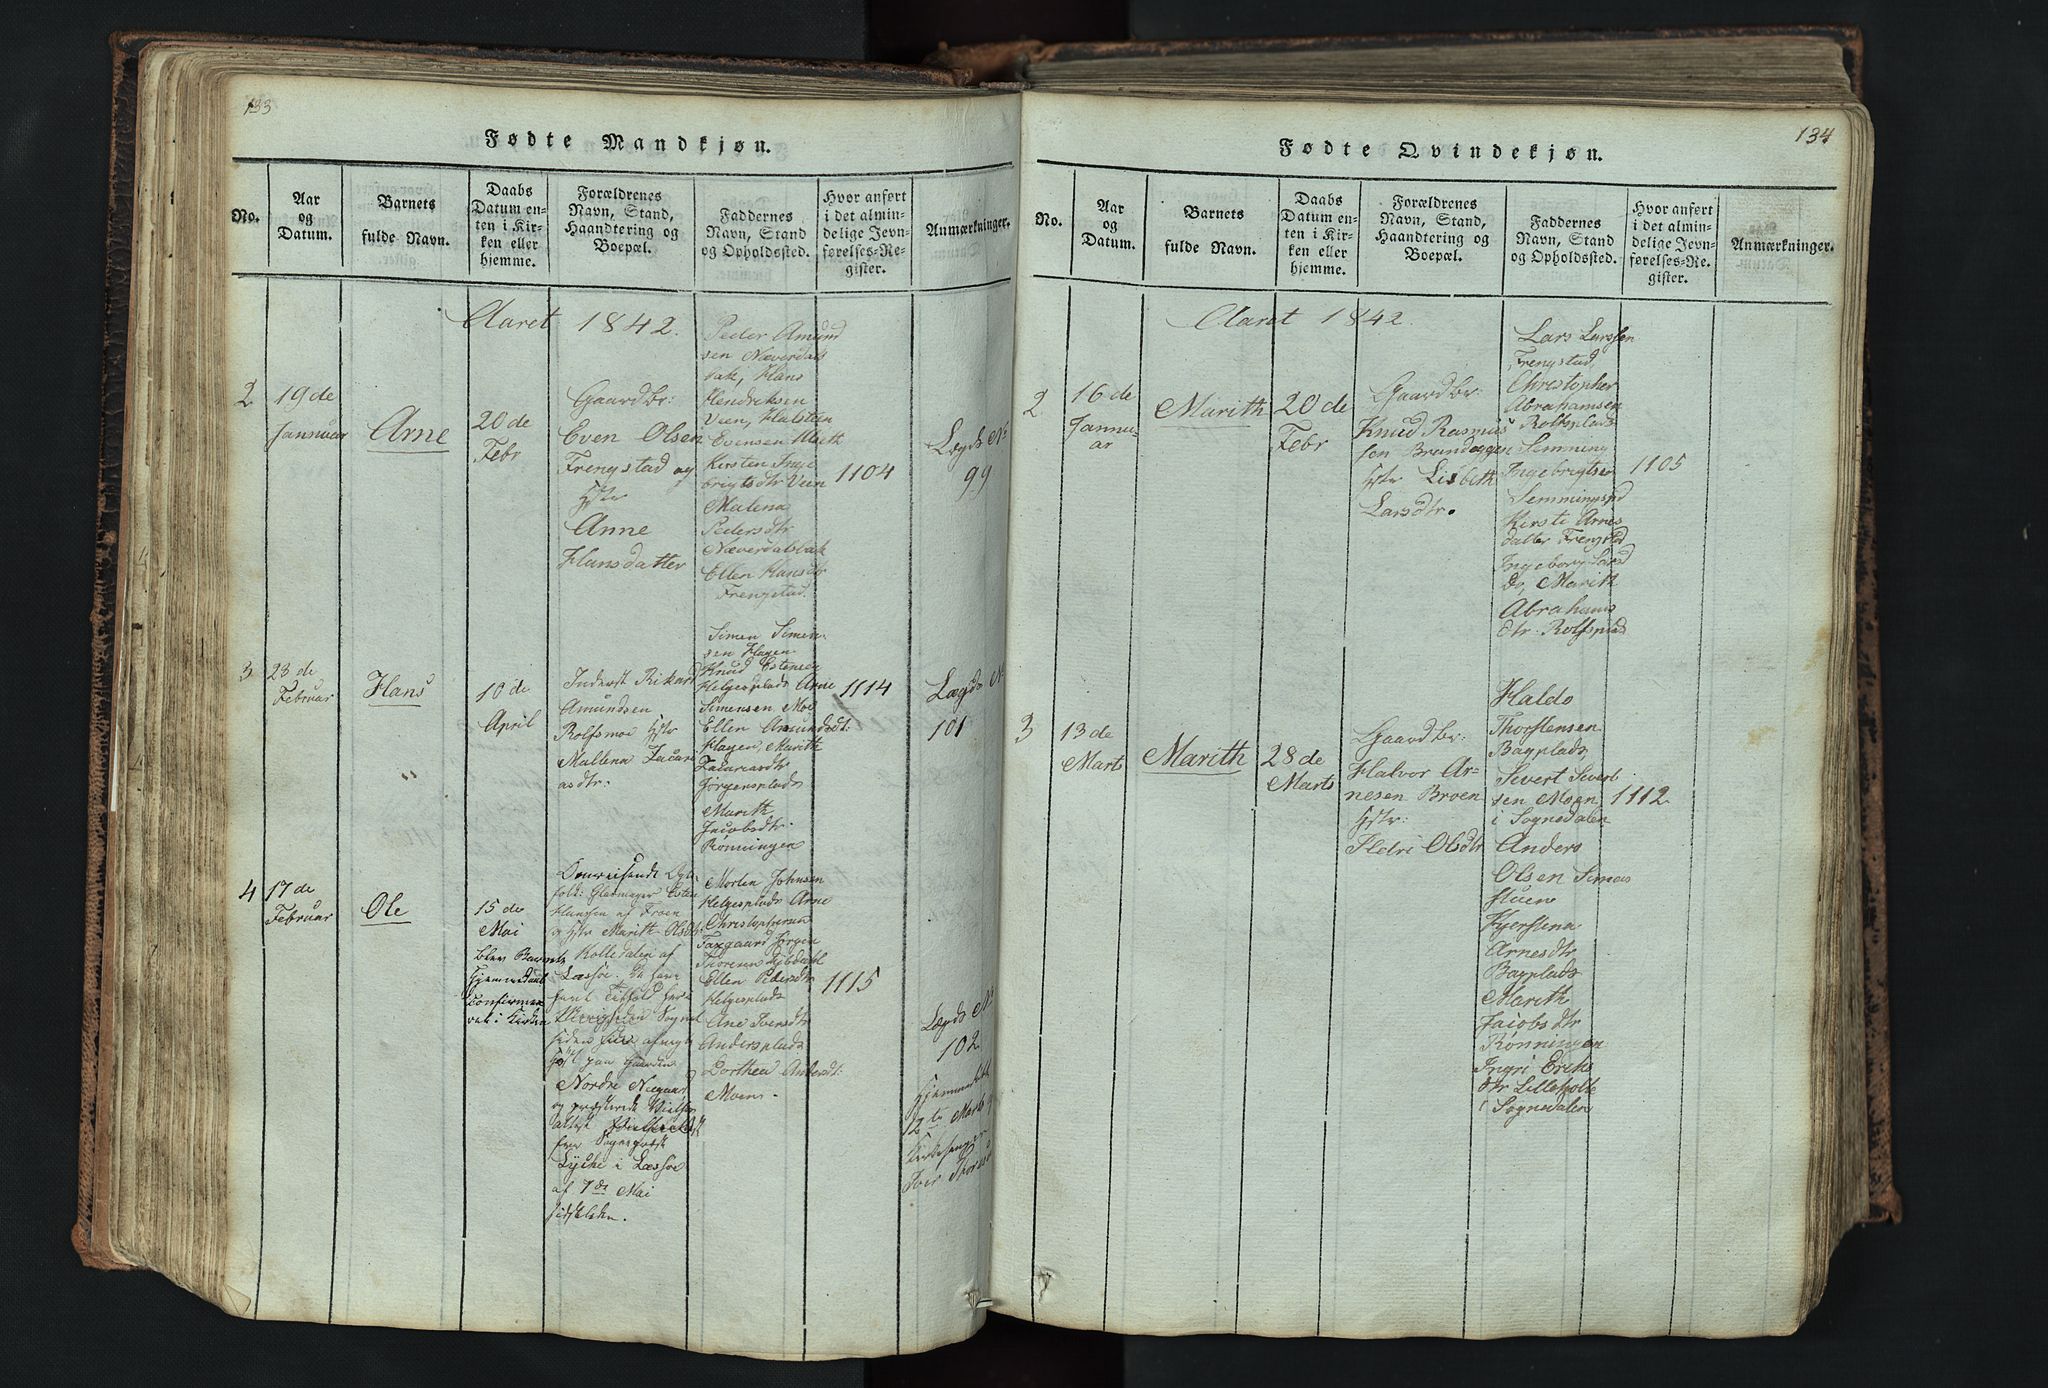 133
Fødte Mandkjøn.
No.
Aar
og
Datum.
Barnets
fulde Navn.
Daabs
Datum en-
ten i Kir-
ken eller
hjemme.
Forældrenes
Navn, Stand,
Haandtering og
Boepæl.
Faddernes
Navn, Stand
og Opholdssted.
Hvor anført
i det almin-
delige Jevn-
førelses-Re-
gister.
Anmærkninger.
Aaret 1842.
2
19de
Januar
Arne
20de
Febr
Gaardbr:
Even Olsen
Frengstad og
Hstr
Anne
Hansdatter
Peder Amund
sen Næverdals
bak, Hans
Hendriksen
Veen, Halsten
Evensen
Kirsten Inge
brigtsdtr Veen
Malena
Pedersdtr
Næverdalsbak
Ellen Hansdtr
Frengstad.
1104
Lægds No
99
3
23de
Februar
Hans
10de
April
Inderst Rikard
Amundsen
Rolfsmoe Hstr
Mallena Zacari
asdtr:
Simen Simen
sen Hagen
Knud Estensen
Helgesplads Arne
Simensen Moe
Ellen Amundsdt:
Hagen, Marith
Zacariasdtr
Jørgensplads
Marith
Jacobsdtr.
Rønningen
1114
Lægds N
101
4
17de
Februar
Ole
15de
Mai
blev Barnets
Hjemmedaab
confirme
ret i Kirken
Omreisende
Glasmager Esten
Hansen af Froen
og Hstr Marith Olsdt:
Kolledalen af
Læssøe.
Nordre Neegaard
og
attest
fra Sognepræst
Lyche i Læssøe
af 7de Mai
sidstleden.
Morten Johnsen
Helgesplads Arne
Christophersen
Taxgaard Jørgen
Thoresen
Ellen Pedersdtr
Helgesplads
Ane Iversdtr
Andersplads
Dorthea Andersdt:
Moen.
1115
Lægds No
102
Hjemmedøbt
12te Marts
Kirkesanger
Iver
134
Fødte Qvindekjøn.
No.
Aar
og
Datum.
Barnets
fulde Navn.
Daabs
Datum en-
ten i Kir-
ken eller
hjemme.
Forældrenes
Navn, Stand,
Haandtering og
Boepæl.
Faddernes
Navn, Stand
og Opholdssted.
Hvor anført
i det almin-
delige Jevn-
førelses-Re-
gister.
Anmærkninger.
Aaret 1842.
2
16de
Janu-
ar
Marith
20de
Febr
Gaardbr:
Knud Rasmus
sen Brandeggen
Hstr Lisbeth
Larsdtr.
Lars Larssen
Frengstad,
Christopher
Abrahamsen
Rolfsplads
Semming
Ingebrigtsen
Semmingspd
Kirsti Arnes
datter Frengstad
Ingeborg Larsd
Do, Marith
Abrahams
dtr Rolfsplads
1105
3
13de
Marts
Marith
28de
Marts
Gaardbr:
Halvor Ar-
nesen Broen
Hstr:
Ildri Olsdtr
Haldo
Thorstensen
Bagplads
Sivert Sivert
sen Moen
i Sognedalen
Anders
Olsen Simas
stuene
Kjerstena
Arnesdtr
Bagplads
Marith
Jacobsdtr
Rønningen
Ingri Eriks
dtr Lilleholte
i Sognedalen
1112